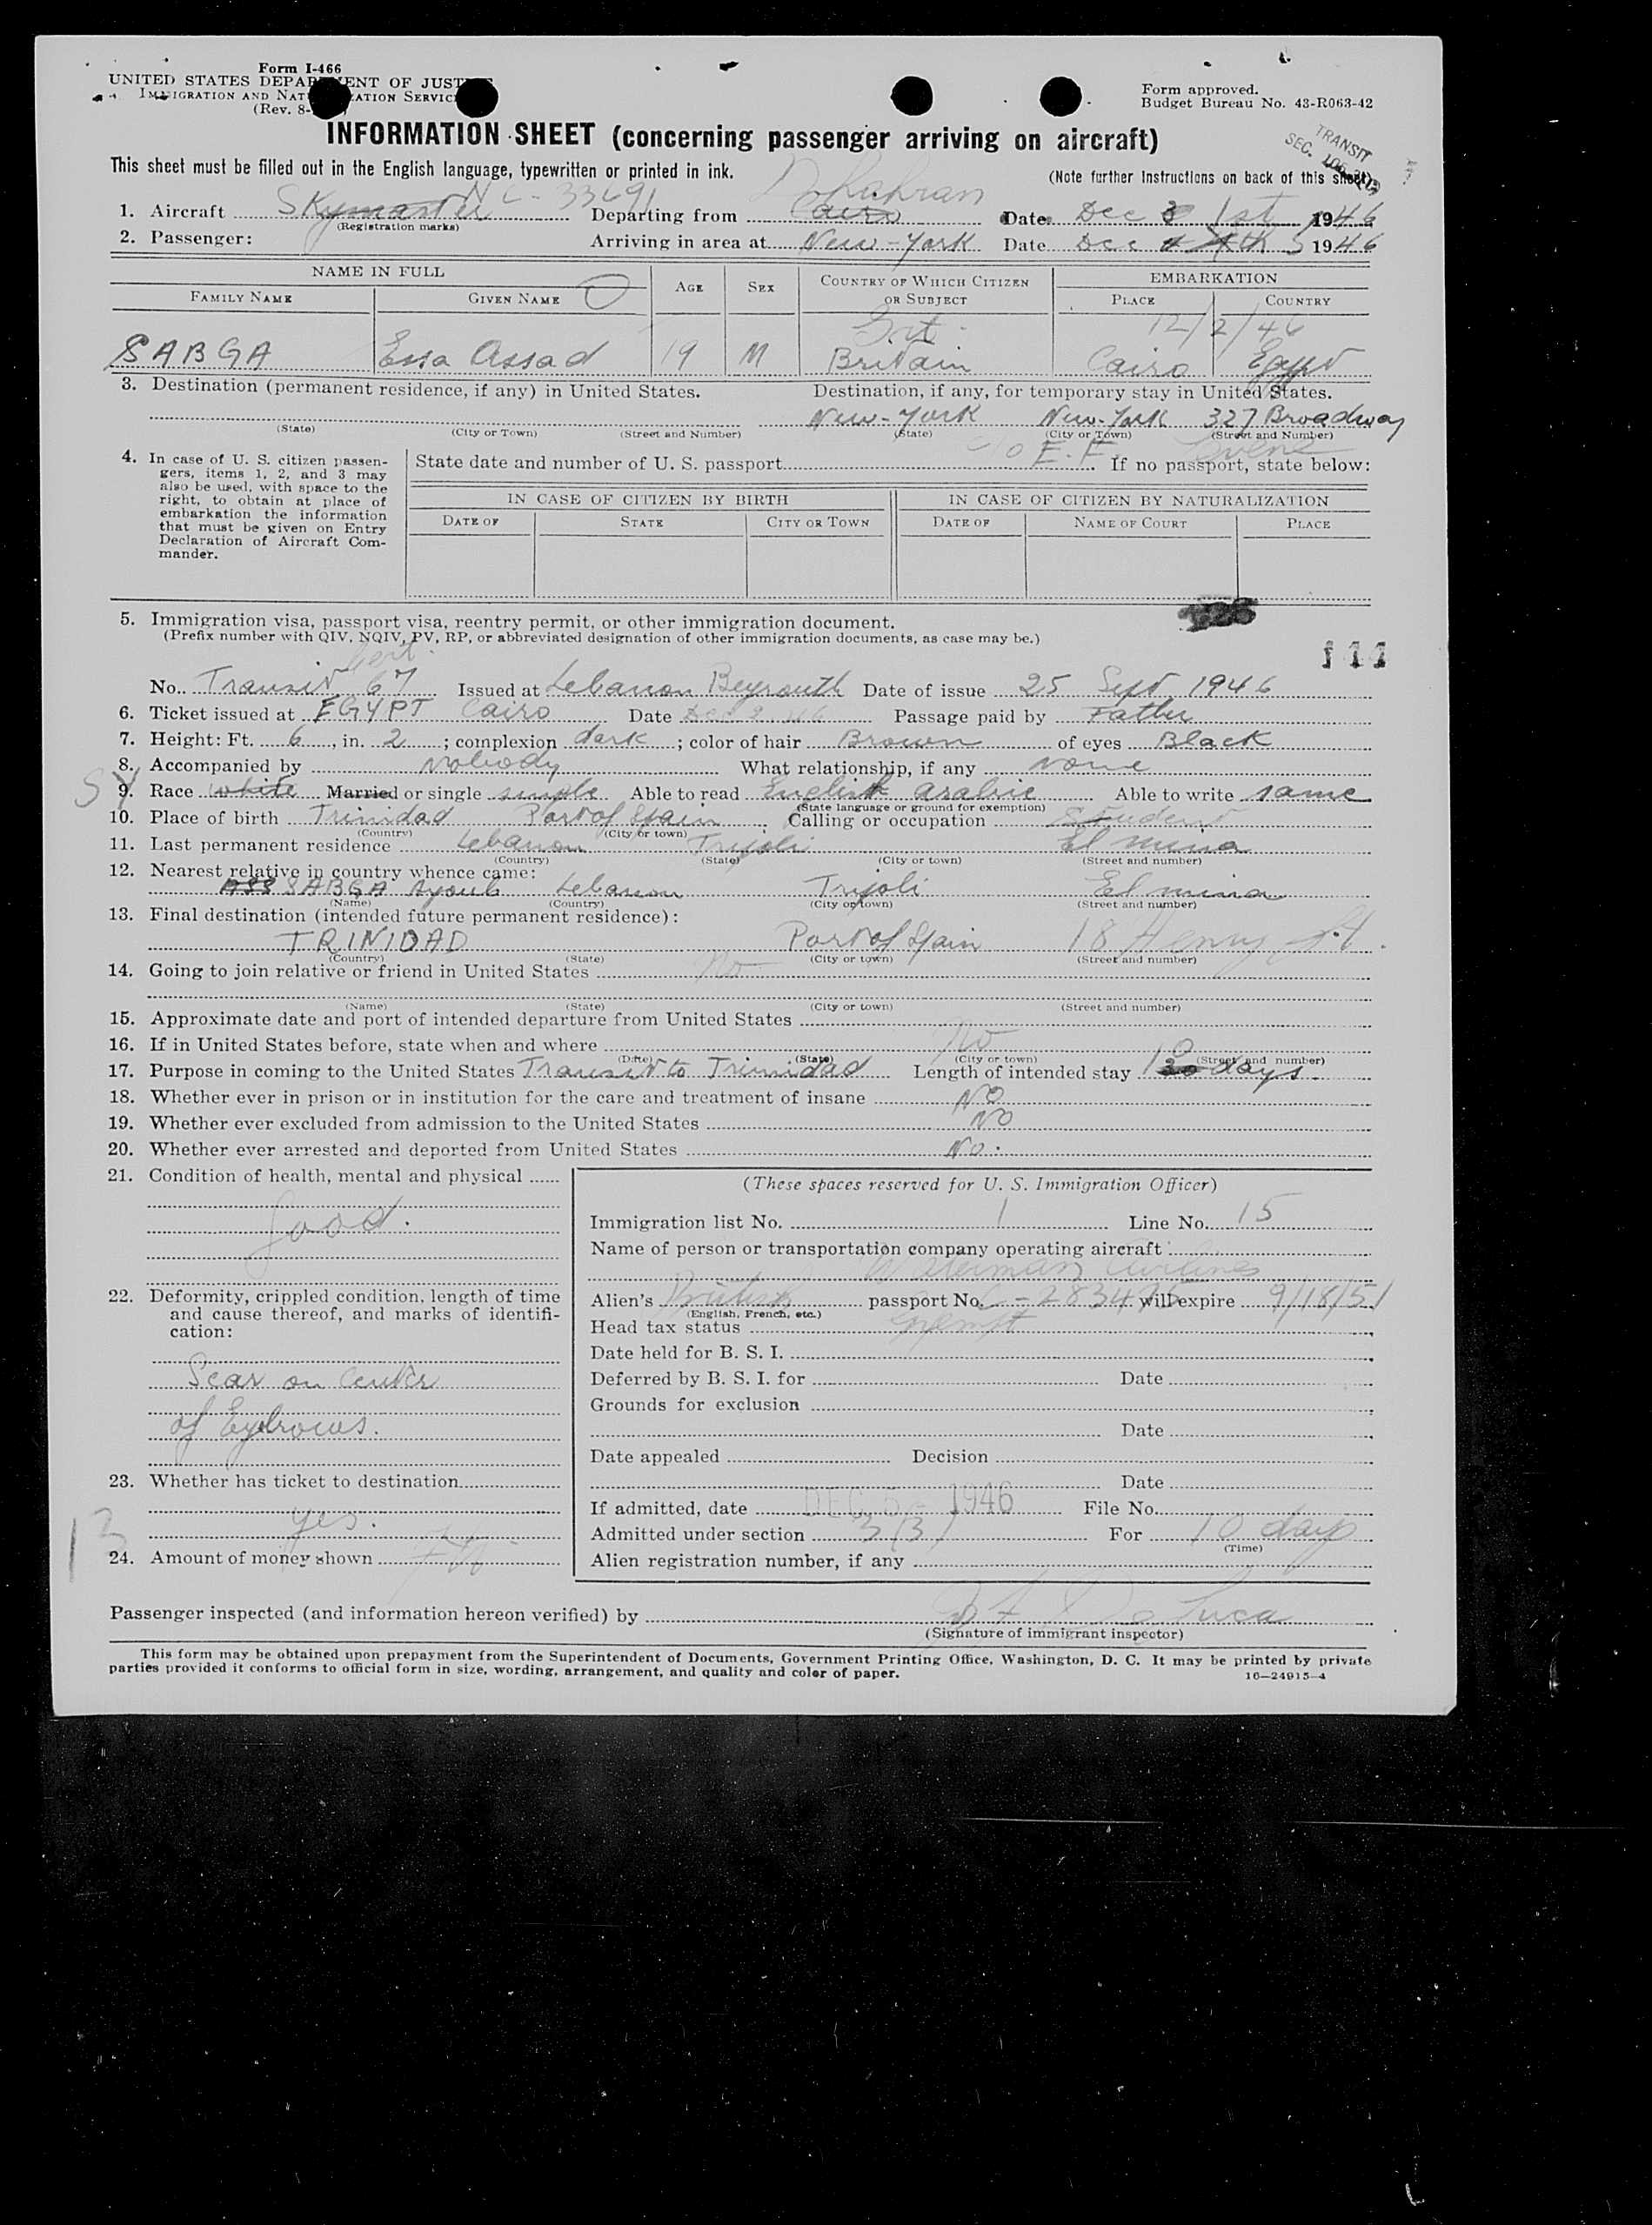 Form I-466
UNITED STATES DEPARTMENT OF JUSTICE
IMMIGRATION AND NATURALIZATION SERVICE
(Rev. 8-
Form approved.
Budget Bureau No. 43-R063-42
INFORMATION SHEET (concerning passenger arriving on aircraft)
TRANSIT
SEC.
This sheet must be filled out in the English language, typewritten or printed in ink. (Note further Instructions on back of this sheet)
NC-33691 Dhahran
1. Aircraft Skymaster Departing from Cairo Date Dec 1st 1946
(Registration marks)
2. Passenger: Arriving in area at New-York Date Dec 5 1946
NAME IN FULL AGE SEX COUNTRY OF WHICH CITIZEN OR SUBJECT EMBARKATION
FAMILY NAME GIVEN NAME PLACE COUNTRY
Grt. 12/2/46
SABGA Essa Assad 19 M Britain Cairo Egypt
3. Destination (permanent residence, if any) in United States. Destination, if any, for temporary stay in United States.
New-York New-York 327 Broadway
(State) (City or Town) (Street and Number) (State) (City or Town) (Street and Number)
c/o E. F.
4. In case of U. S. citizen passengers, items 1, 2, and 3 may also be used, with space to the right, to obtain at place of embarkation the information that must be given on Entry Declaration of Aircraft Commander.
State date and number of U. S. passport If no passport, state below:
IN CASE OF CITIZEN BY BIRTH IN CASE OF CITIZEN BY NATURALIZATION
DATE OF STATE CITY OR TOWN DATE OF NAME OF COURT PLACE
5. Immigration visa, passport visa, reentry permit, or other immigration document.
(Prefix number with QIV, NQIV, PV, RP, or abbreviated designation of other immigration documents, as case may be.)
111
Cert.
No. Transit 67 Issued at Lebanon Beyrouth Date of issue 25 Sept 1946
6. Ticket issued at EGYPT Cairo Date Dec 2 46 Passage paid by Father
7. Height: Ft. 6, in. 2; complexion dark; color of hair Brown of eyes Black
8. Accompanied by Nobody What relationship, if any None
SY
9. Race white Married or single single Able to read English Arabic Able to write same
(State language or ground for exemption)
10. Place of birth Trinidad Port of Spain Calling or occupation Student
(Country) (City or town)
11. Last permanent residence Lebanon Tripoli El mina
(Country) (State) (City or town) (Street and number)
12. Nearest relative in country whence came:
SABGA Ayoub Lebanon Tripoli El mina
(Name) (Country) (City or town) (Street and number)
13. Final destination (intended future permanent residence):
TRINIDAD Port of Spain 18 Henry St.
(Country) (State) (City or town) (Street and number)
14. Going to join relative or friend in United States No
(Name) (State) (City or town) (Street and number)
15. Approximate date and port of intended departure from United States
16. If in United States before, state when and where No
(Date) (State) (City or town) (Street and number)
17. Purpose in coming to the United States Transit to Trinidad Length of intended stay 10 days.
18. Whether ever in prison or in institution for the care and treatment of insane NO
19. Whether ever excluded from admission to the United States NO
20. Whether ever arrested and deported from United States No.
21. Condition of health, mental and physical
Good.
22. Deformity, crippled condition, length of time and cause thereof, and marks of identification:
Scar on Center
of Eyebrows.
23. Whether has ticket to destination
yes.
24. Amount of money shown
(These spaces reserved for U. S. Immigration Officer)
Immigration list No. 1 Line No. 15
Name of person or transportation company operating aircraft
Waterman Airlines
Alien's British passport No. C-283495 will expire 9/18/51
(English, French, etc.)
Head tax status Exempt
Date held for B. S. I.
Deferred by B. S. I. for Date
Grounds for exclusion
Date
Date appealed Decision
Date
If admitted, date DEC 5 - 1946 File No.
Admitted under section 3(3) For 10 days
(Time)
Alien registration number, if any
Passenger inspected (and information hereon verified) by De Luca
(Signature of immigrant inspector)
This form may be obtained upon prepayment from the Superintendent of Documents, Government Printing Office, Washington, D. C. It may be printed by private
parties provided it conforms to official form in size, wording, arrangement, and quality and color of paper. 16—24915-4